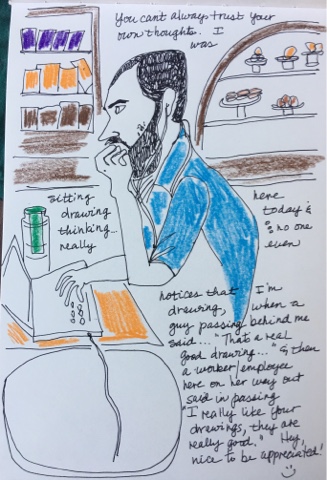 You cant always trust your
own thoughts. I
was
sitting
drawing
thinking...
really
here
today &
no one
even
notices that I'm
drawing, when a
guy passing behind me
said... "That's a real
good drawing..." & then
a worker/employee
here on her way out
said in passing
"I really like your
drawings, they are
really good." Hey,
nice to be appreciated!